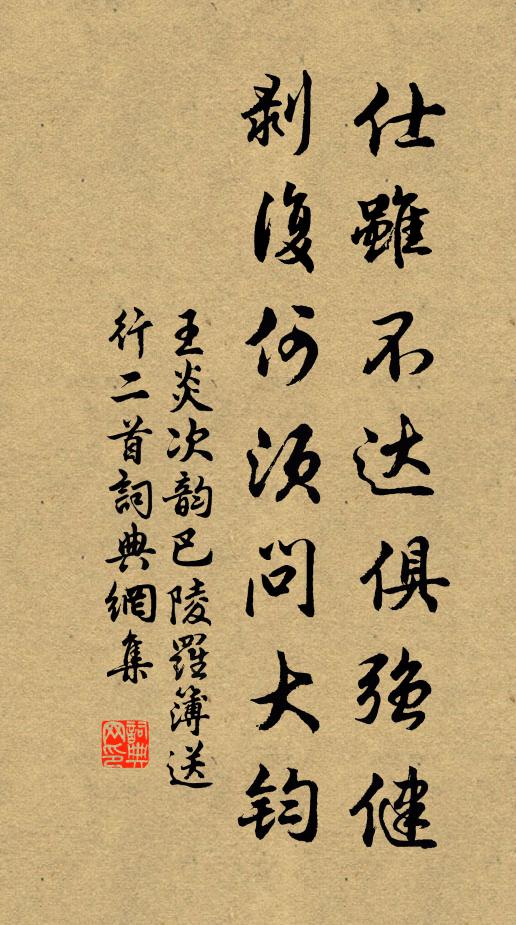 仕雖不达俱强健
剥復何須問大鈞
王炎次韵巴陵羅簿送
行二首詞典網集
詞典
网印